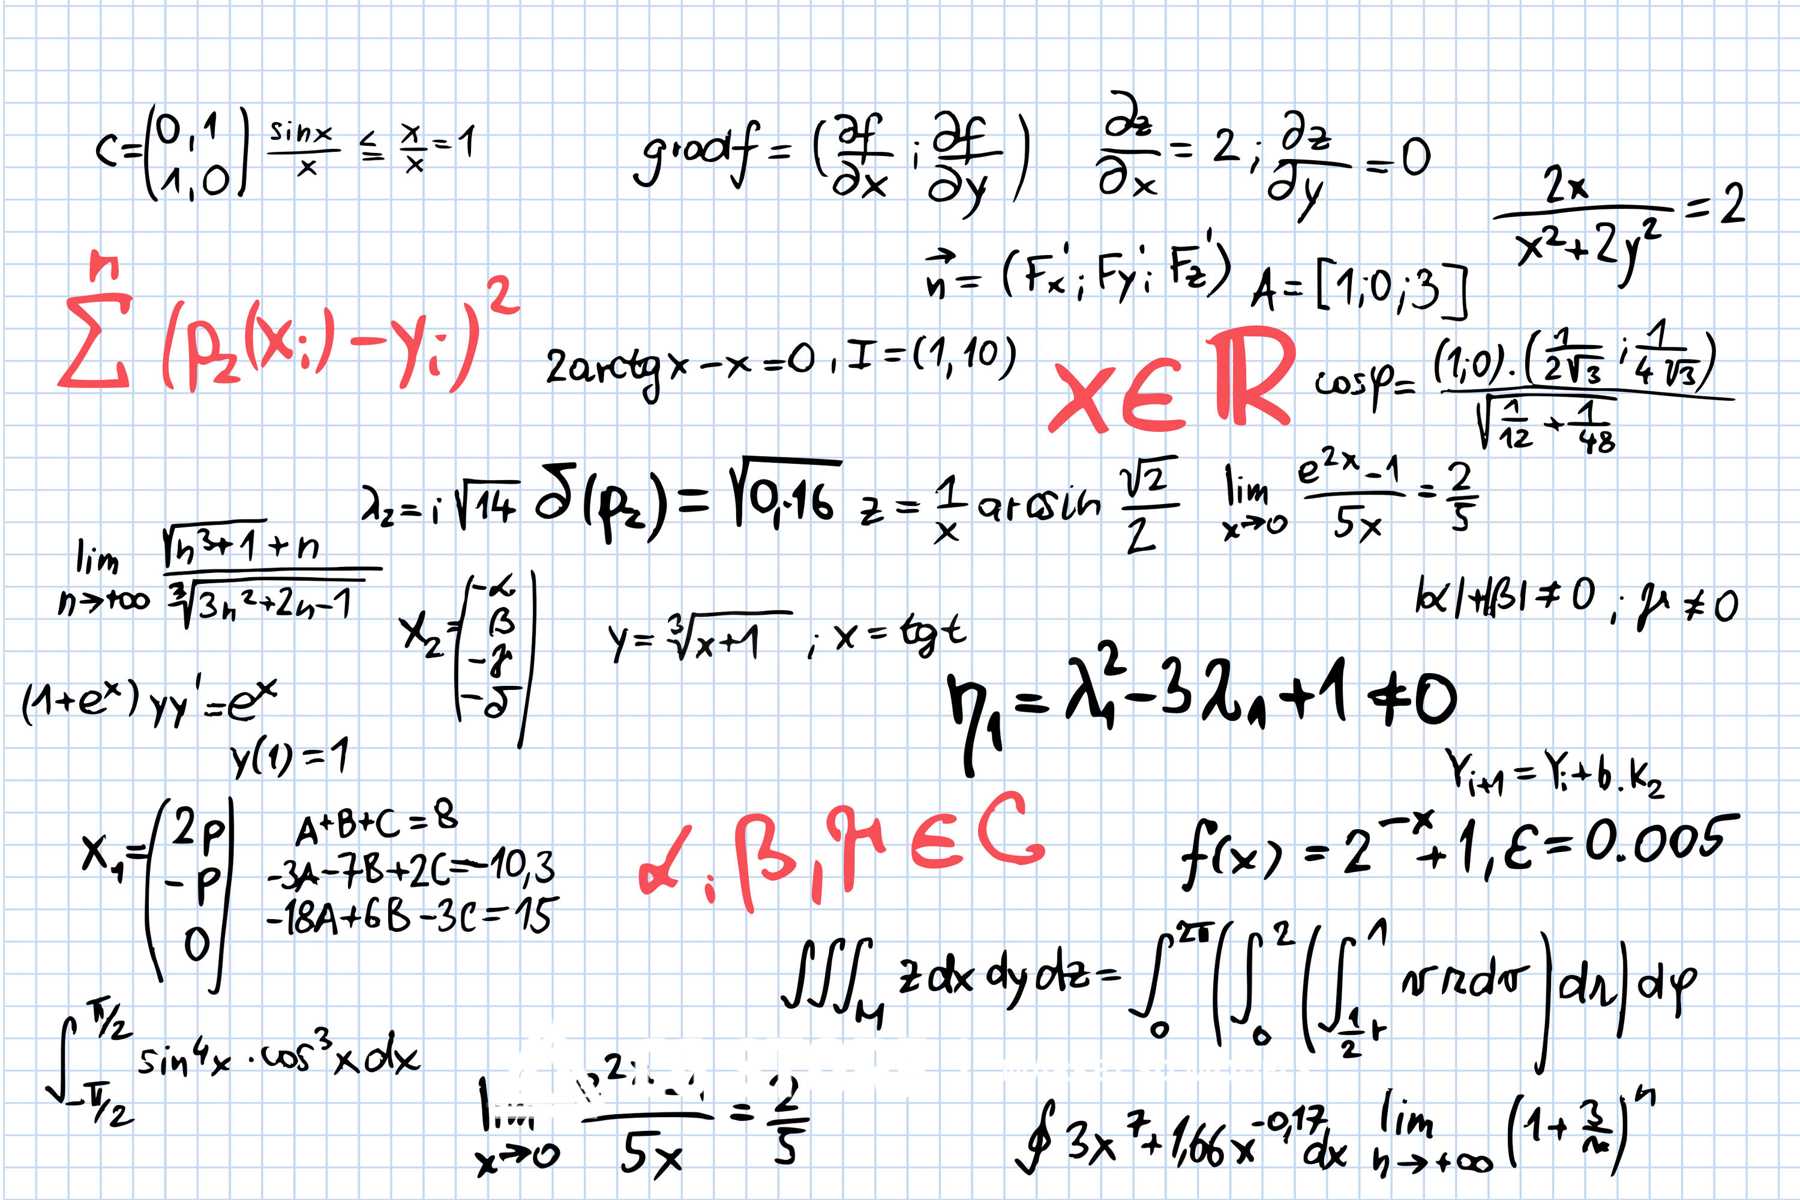 C=(0,1 1,0) sinx/x ≤ x/x=1
gradf = (∂f/∂x ; ∂f/∂y) ∂z/∂x = 2 ; ∂z/∂y = 0
2x/(x²+2y²) = 2
n⃗ = (Fx' ; Fy' ; Fz') A=[1;0;3]
∑ⁿ (p₂(xᵢ)-yᵢ)²
2arctgx-x=0, I=(1,10)
x∈ℝ
cosφ= (1;0).(1/2√3 ; 1/4√3) / √(1/12 + 1/48)
λ₂=i√14 δ(p₂)=√0,16 z = 1/x arcsin √2/2
lim x→0 (e^2x-1)/5x = 2/5
lim n→+∞ (√(n³+1)+n)/∛(3n²+2n-1)
X₂=(-α β -γ -δ)
y=∛(x+1) ; x=tgt
|α|+|β|≠0 ; γ≠0
(1+eˣ)yy'=eˣ
y(1)=1
η₁=λ₁²-3λ₁+1≠0
Yᵢ₊₁=Yᵢ+b.K₂
X₁=(2p -p 0)
A+B+C=8
-3A-7B+2C=-10,3
-18A+6B-3C=15
α,β,γ∈C
f(x)=2^-x+1, ε=0.005
∭M zdxdydz=∫0^2π(∫0^2(∫½r^1 vrdv)dr)dφ
∫-π/2^π/2 sin⁴x·cos³xdx
lim x→0 /5x = 2/5
∮3x⁷+1,66x^-0,17dx lim n→+∞ (1+3/n)ⁿ